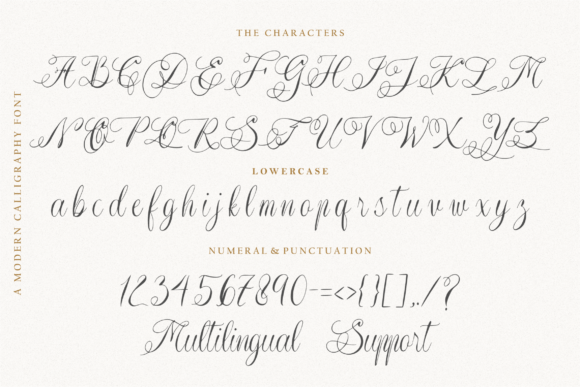 THE CHARACTERS
ABCDEFGHIJKLM
NOPQRSTUVWXYZ
LOWERCASE
abcdefghijklmnopqrstuvwxyz
NUMERAL & PUNCTUATION
1234567890-=<>{}[],./?
Multilingual Support
A MODERN CALLIGRAPHY FONT